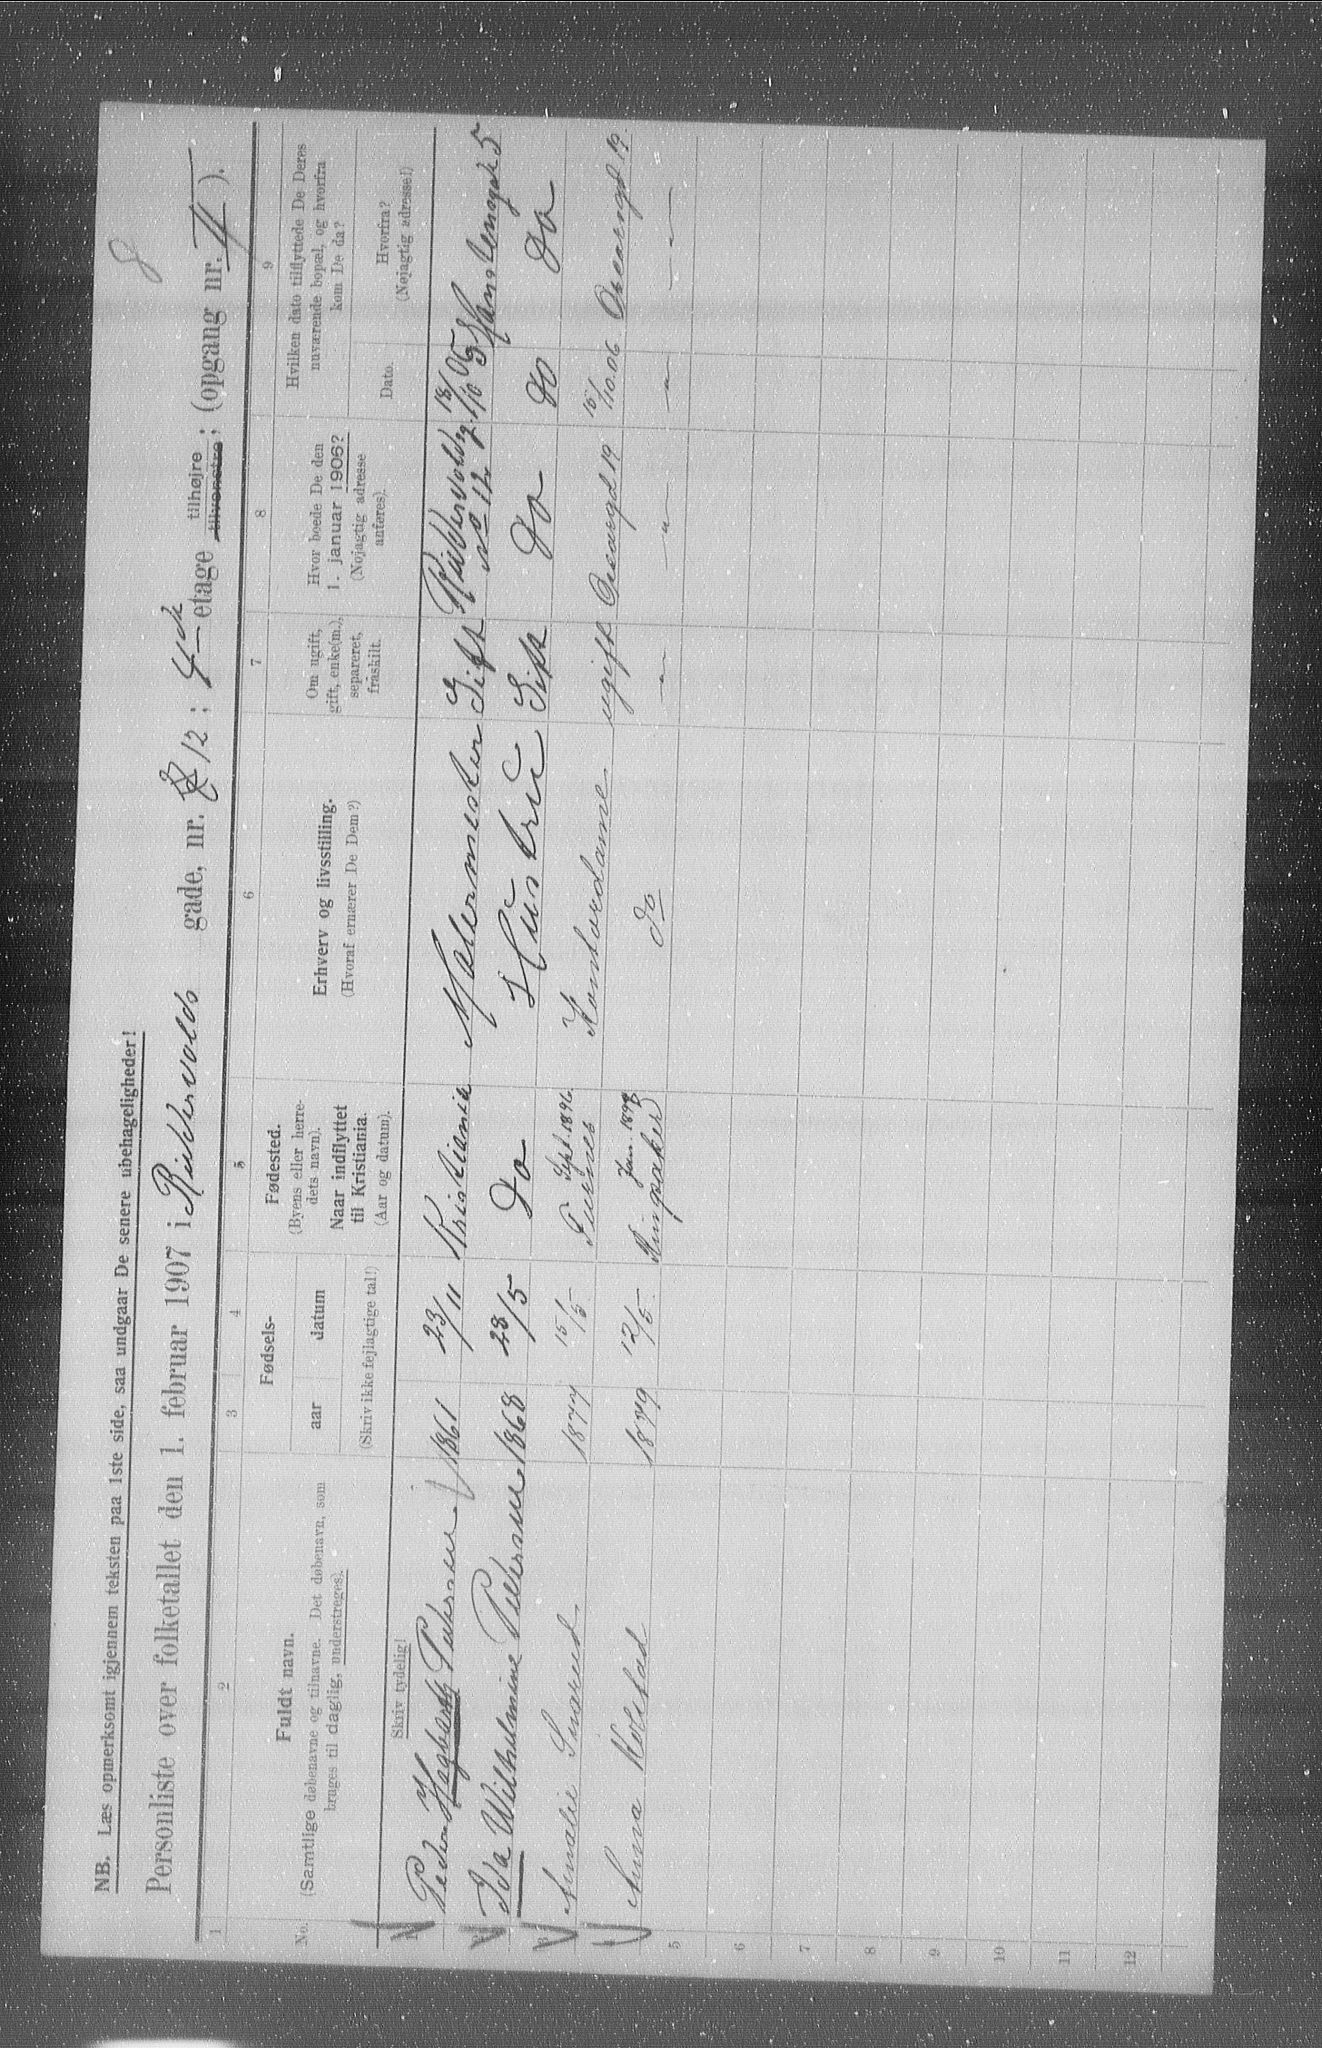 8
NB. Læs opmerksomt igjennem teksten paa 1ste side, saa undgaar De senere ubehageligheder!
Personliste over folketallet den 1. februar 1907 i Riddervolds gade, nr. 12; 4de etage tilhøjre tilvenstre; (opgang nr. II).
1 2 3 4 5 6 7 8 9
No.
Fuldt navn.
(Samtlige døbenavne og tilnavne. Det døbenavn, som
bruges til daglig, understreges).
Skriv tydelig!
Fødsels-
aar datum
(Skriv ikke fejlagtige tal!)
Fødested.
(Byens eller herre-
dets navn).
Naar indflyttet
til Kristiania.
(Aar og datum).
Erhverv og livsstilling.
(Hvoraf ernærer De Dem?)
Om ugift,
gift, enke(m.),
separeret,
fraskilt.
Hvor boede De den
1. januar 1906?
(Nøjagtig adresse
anføres).
Hvilken dato tilflyttede De Deres
nuværende bopæl, og hvorfra
kom De da?
Dato.
Hvorfra?
(Nøjagtig adresse!)
Peder Hagbarth Pedersen 1861 23/11 Kristiania Malermester Gift Riddervoldsg. No 12 18/10 05 Hanstensgade 5
Ida Wilhelmine Pedersen 1868 28/5 Do Hustru Gift Do do Do
3 Amalie 1877 15/5 Sept. 1896 Kontordame ugift Oscarsgd 19 15/10.06 Oscarsgd 19.
Anna Kolstad 1879 12/5. Jan. 1898 Ringsaker do — " — — " — — " — — " —
5
6
7
8
9
10
11
12